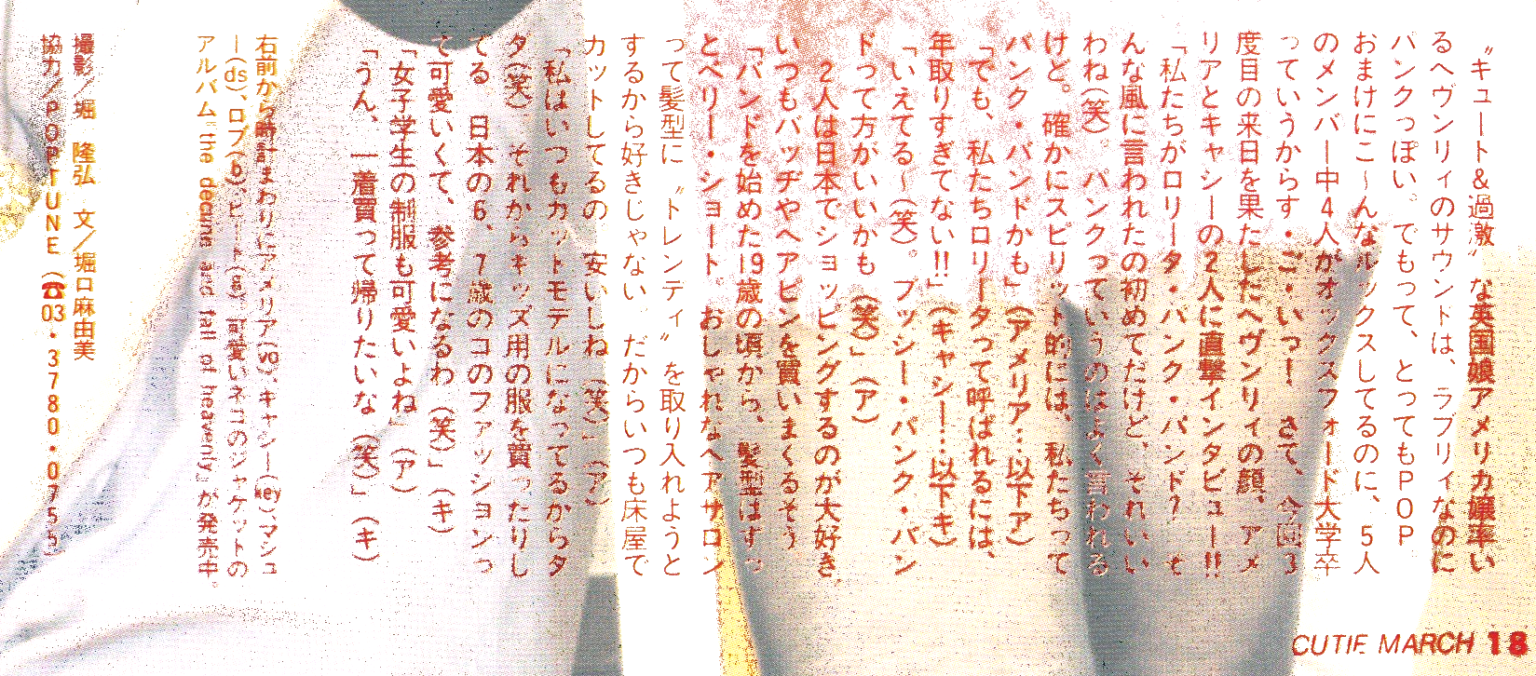 〝キュート＆過激〟な英国娘アメリカ嬢率い
るヘヴンリィのサウンドは、ラブリィなのに
パンクっぽい。でもって、とってもＰＯＰ
おまけにこ〜んなルックスしてるのに、５人
のメンバー中４人がオックスフォード大学卒
っていうからす・ご・いっ！　さて、今回３
度目の来日を果たしたヘヴンリィの顔、アメ
リアとキャシーの２人に直撃インタビュー!!
「私たちがロリータ・パンク・バンド？　そ
んな風に言われたの初めてだけど、それいい
わね（笑）。パンクっていうのはよく言われる
けど。確かにスピリット的には、私たちって
パンク・バンドかも」（アメリア…以下ア）
「でも、私たちロリータって呼ばれるには、
年取りすぎてない!!」（キャシー…以下キ）
「いえてる〜（笑）。プッシー・パンク・バン
ドって方がいいかも（笑）」（ア）
　２人は日本でショッピングするのが大好き
いつもバッヂやヘアピンを買いまくるそう
「バンドを始めた19歳の頃から、髪型はずっ
とベリー・ショート。おしゃれなヘアサロン
って髪型に〝トレンディ〟を取り入れようと
するから好きじゃない　だからいつも床屋で
カットしてるの　安いしね（笑）」（ア）
「私はいつもカットモデルになってるからタ
タ（笑）　それからキッズ用の服を買ったりし
てる　日本の６、７歳のコのファッションっ
て可愛いくて、参考になるわ（笑）」（キ）
「女子学生の制服も可愛いよね」（ア）
「うん、一着買って帰りたいな（笑）」（キ）
右前から時計まわりにアメリア（vo）、キャシー（key）、マシュ
ー（ds）、ロブ（b）、ピート（g）、可愛いネコのジャケットの
アルバム『the decline and fall of heavenly』が発売中。
撮影／堀　隆弘　文／堀口麻由美
協力／ＰＯＰＴＵＮＥ（☎03・３７８０・０７５５）
CUTIE MARCH 18